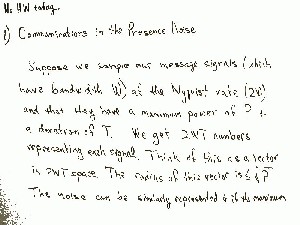 No HW today.
1) Communications in the Presence Noise
Suppose we sample our message signals (which
have bandwidth W) at the Nyquist rate (2W)
and that they have a maximum power of P &
a duration of T. We get 2WT numbers
representing each signal. Think of this as a vector
in 2WT space. The radius of this vector is ≤
The noise can be similarly represented & if the maximum